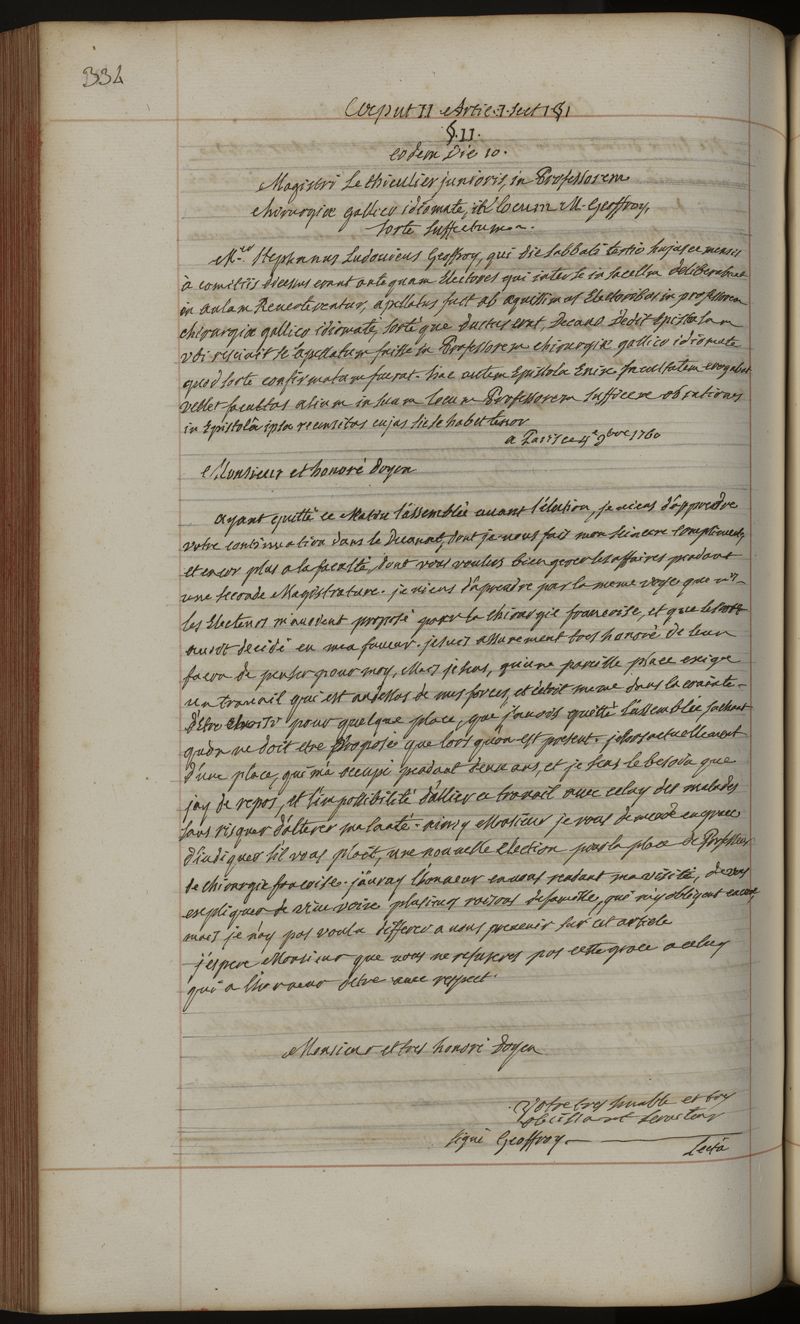 334
Caput II Artic. I sect I § I
§. II.
eodem Die 10.
Magistri Le thieulier junioris, in Professorem
chirurgiæ gallico idiomate, in locum M. Geoffroy,
sorte suffectum.
M.er Stephanus Ludovicus Geoffroy, qui die sabbati tertio hujusce mensis
à comitiis discessus erant antequam Electores qui inter se in sacello deliberabant
in aulam Reverterentur, apellatus fuit ab æquissimis Electoribus in professorem
chirurgiæ gallico idiomate, sorte que ductus erat, Decano Dedit Epistolam
ubi resciuit se apellatum fuisse in Professorem chirurgiæ gallico idiomate
quod sorte confirmatum fuerat. hac autem Epistola Enixe facultatem rogabat
vellet facultas alium in suum locum Professorem sufficere ob rationes
in Epistolâ ipsa recensitas cujus sic se habet tenor
a Paris ce 4e 9bre 1760
Monsieur et honoré doyen
ayant quitté ce Matin l'assemblée avant l'élection, je viens d'apprendre
votre continuation dans le Decanat, dont je vous fais mon sincere compliment,
et encor plus a la faculté, dont vous voulés bien gerer les affaires pendant
une seconde Magistrature. je viens d'aprendre par la meme voye que mrs
les Electeurs m'avoient proposé pour la chirurgie francoise, et que le sort
auroit decidé en ma faveur. je suis assurement tres honoré de leur
facon de penser pour moy, Mais je sens, qu'une pareille place exige
un travail qui est au dessus de mes forces, et c'étoit meme dans la crainte
d'être choisi pour quelque place, que j'avois quitté l'assemblée sachant
qu'on ne doit etre proposé que lors qu'on est present. je sors actuellement
d'une place, qui m'a occupé pendant deux ans, et je sens le besoin que
jay de repos, et l'impossibilité d'allier ce travail avec celuy des malades
sans risquer d'alterer ma santé. ainsy Monsieur je vous demande en grace
d'indiquer s'il vous plaît, une nouvelle election pour la place de Professeur
de chirurgie francoise. j'auray l'honneur en vous rendant ma visite, de vous
expliquer de vive voix plusieurs raisons de famille, qui m'y obligent encor,
mais je n'ay pas voulu differer a vous prevenir sur cet article
j'espere Monsieur que vous ne refuserés pas cette grace a celuy
qui a l'honneur d'etre avec respect.
Monsieur et tres honoré doyen
Votre tres humble et tres
obeissant serviteur
signé Geoffroy.
Lectâ